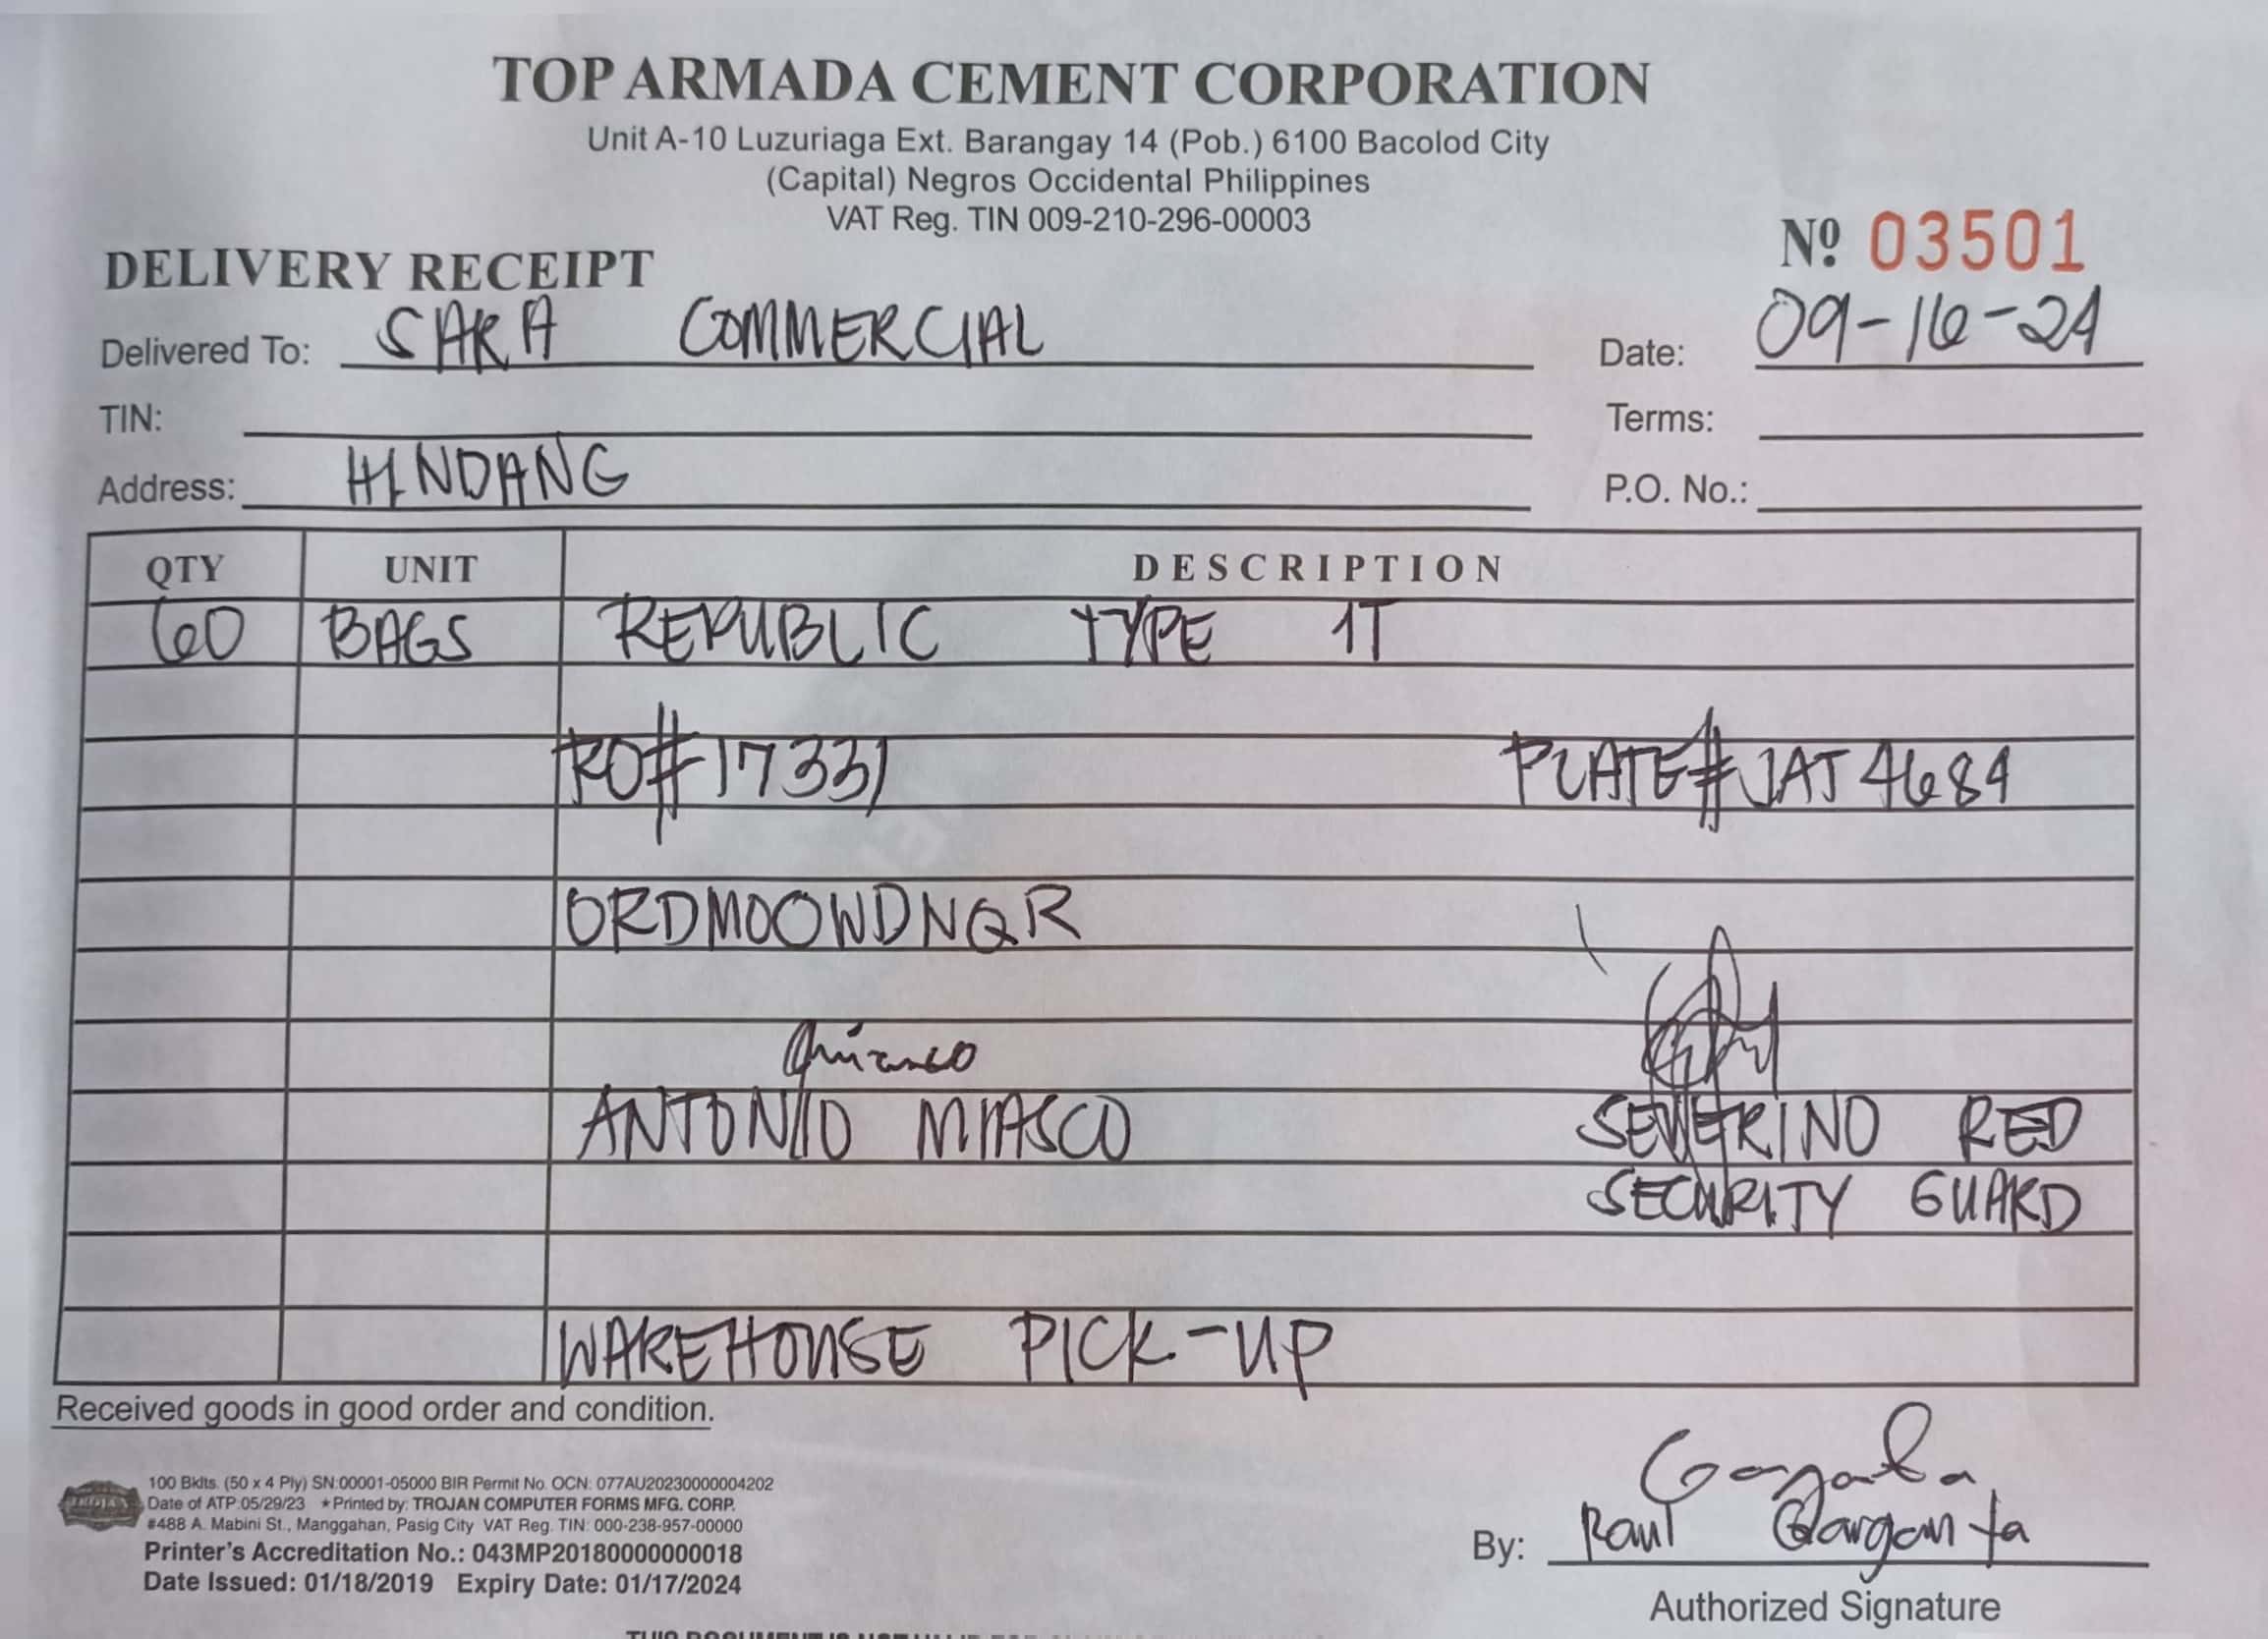 TOP ARMADA CEMENT CORPORATION
Unit A-10 Luzuriaga Ext. Barangay 14 (Pob.) 6100 Bacolod City
(Capital) Negros Occidental Philippines
VAT Reg. TIN 009-210-296-00003
Nº 03501
DELIVERY RECEIPT
Delivered To: SARA COMMERCIAL Date: 09-16-24
TIN: Terms:
Address: HINDANG P.O. No.:
QTY UNIT DESCRIPTION
60 BAGS REPUBLIC TYPE 1T
RO# 17331 PLATE# JAT 4684
ORDMOOWDNQR
ANTONIO MIASCO SEVERINO RED
SECURITY GUARD
WAREHOUSE PICK-UP
Received goods in good order and condition.
100 Bklts. (50 x 4 Ply) SN:00001-05000 BIR Permit No. OCN: 077AU20230000004202
Date of ATP:05/29/23 ★Printed by: TROJAN COMPUTER FORMS MFG. CORP.
#488 A. Mabini St., Manggahan, Pasig City VAT Reg. TIN: 000-238-957-00000
Printer's Accreditation No.: 043MP20180000000018
Date Issued: 01/18/2019 Expiry Date: 01/17/2024
By: Raul Garganta
Authorized Signature